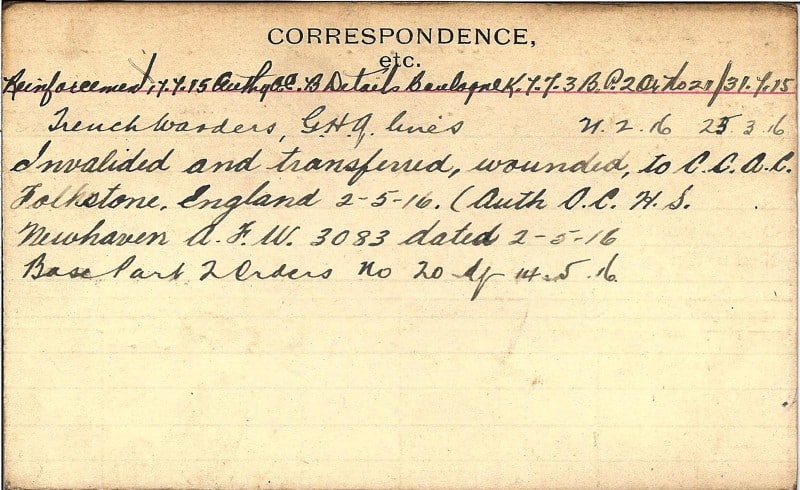 CORRESPONDENCE,
etc.
Reinforcement, 7.7.15 Authy O.C. B Details Boulogne K. 7.7.3 B.P.2 O. No 21/31.7.15
Trench Warders, G.H.Q. lines 21.2.16 25 3 16
Invalided and transferred, wounded, to C.C.A.C.
Folkstone, England 2-5-16. (Auth O.C. H.S.
Newhaven A.F.W. 3083 dated 2-5-16
Base Part 2 Orders No 20 of 14.5.16.